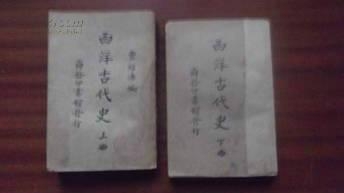 西洋古代史 上册
商務印書館發行
西洋古代史 下册
商務印書館發行